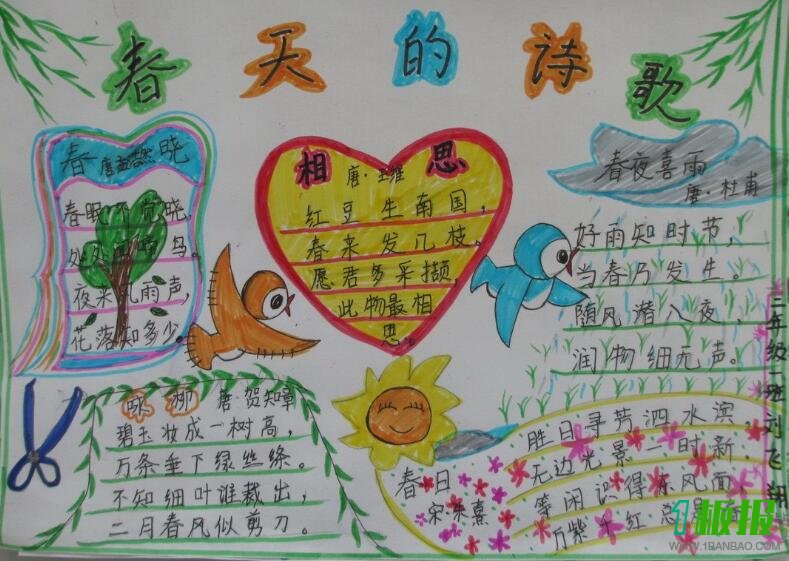 春天的诗歌
春 唐 孟浩然 晓
春眠不觉晓，
处处闻啼鸟。
夜来风雨声，
花落知多少。
相思
唐·王维
红豆生南国，
春来发几枝。
愿君多采撷，
此物最相
思。
春夜喜雨
唐·杜甫
好雨知时节，
当春乃发生。
随风潜入夜，
润物细无声。
咏柳 唐·贺知章
碧玉妆成一树高，
万条垂下绿丝绦。
不知细叶谁裁出，
二月春风似剪刀。
春日
宋 朱熹
胜日寻芳泗水滨
无边光景一时新
等闲识得东风面
万紫千红总是春
二年级一班刘飞翔
1板报
WWW.1BANBAO.COM